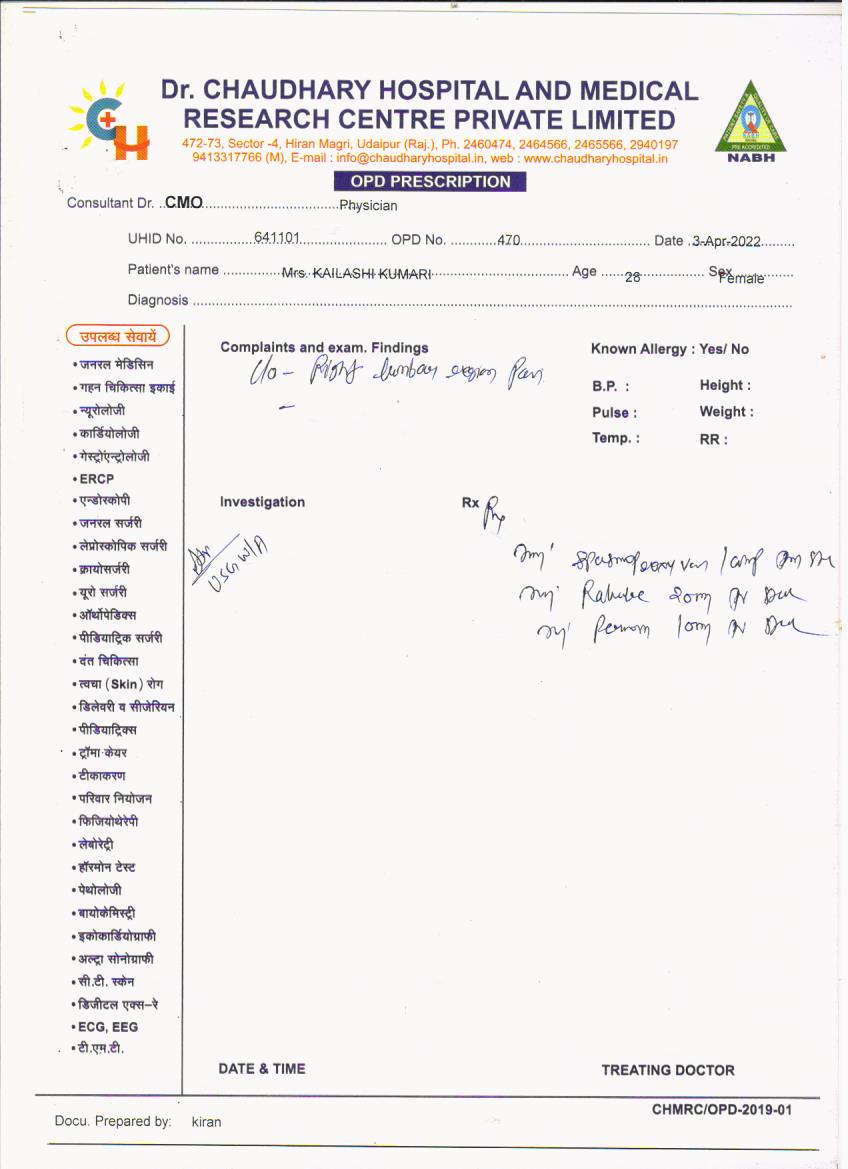 Dr. CHAUDHARY HOSPITAL AND MEDICAL
RESEARCH CENTRE PRIVATE LIMITED
472-73, Sector -4, Hiran Magri, Udaipur (Raj.), Ph. 2460474, 2464566, 2465566, 2940197
9413317766 (M), E-mail : info@chaudharyhospital.in, web : www.chaudharyhospital.in
PRE ACCREDITED
NABH
OPD PRESCRIPTION
Consultant Dr. ..CMO....................................Physician
UHID No. ................641101...................... OPD No. ............470................................. Date .3-Apr-2022.........
Patient's name ...............Mrs. KAILASHI KUMARI................................... Age .......28................. Sex Female
Diagnosis ...........................................................................................................
उपलब्ध सेवायें
• जनरल मेडिसिन
• गहन चिकित्सा इकाई
• न्यूरोलोजी
• कार्डियोलोजी
• गेस्ट्रोएन्ट्रोलोजी
• ERCP
• एन्डोस्कोपी
• जनरल सर्जरी
• लेप्रोस्कोपिक सर्जरी
• क्रायोसर्जरी
• यूरो सर्जरी
• ऑर्थोपेडिक्स
• पीडियाट्रिक सर्जरी
• दंत चिकित्सा
• त्वचा (Skin) रोग
• डिलेवरी व सीजेरियन
• पीडियाट्रिक्स
• ट्रॉमा केयर
• टीकाकरण
• परिवार नियोजन
• फिजियोथेरेपी
• लेबोरेट्री
• हॉरमोन टेस्ट
• पेथोलोजी
• बायोकेमिस्ट्री
• इकोकार्डियोग्राफी
• अल्ट्रा सोनोग्राफी
• सी.टी. स्केन
• डिजीटल एक्स-रे
• ECG, EEG
• टी.एम.टी.
Complaints and exam. Findings
C/o - Right lumbar region Pain
Known Allergy : Yes/ No
B.P. : Height :
Pulse : Weight :
Temp. : RR :
Investigation
USG W/A
Rx
Inj
Inj 20mg
Inj 10mg
DATE & TIME
TREATING DOCTOR
CHMRC/OPD-2019-01
Docu. Prepared by: kiran